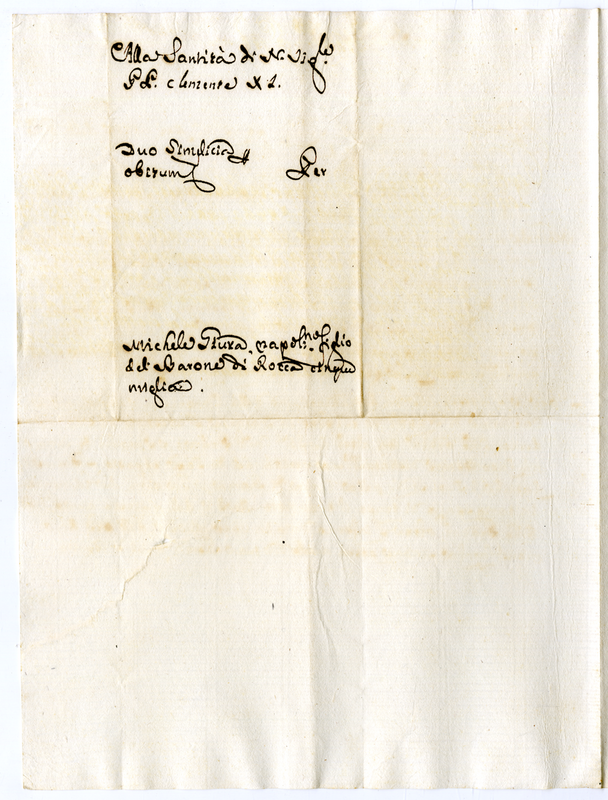 Alla Santità di N. Sig.re
P P. Clemente XI.
Duo Simplicia
obitum
Per
Michele napol.ne figlio
del Barone di Rocca cinque
miglia.